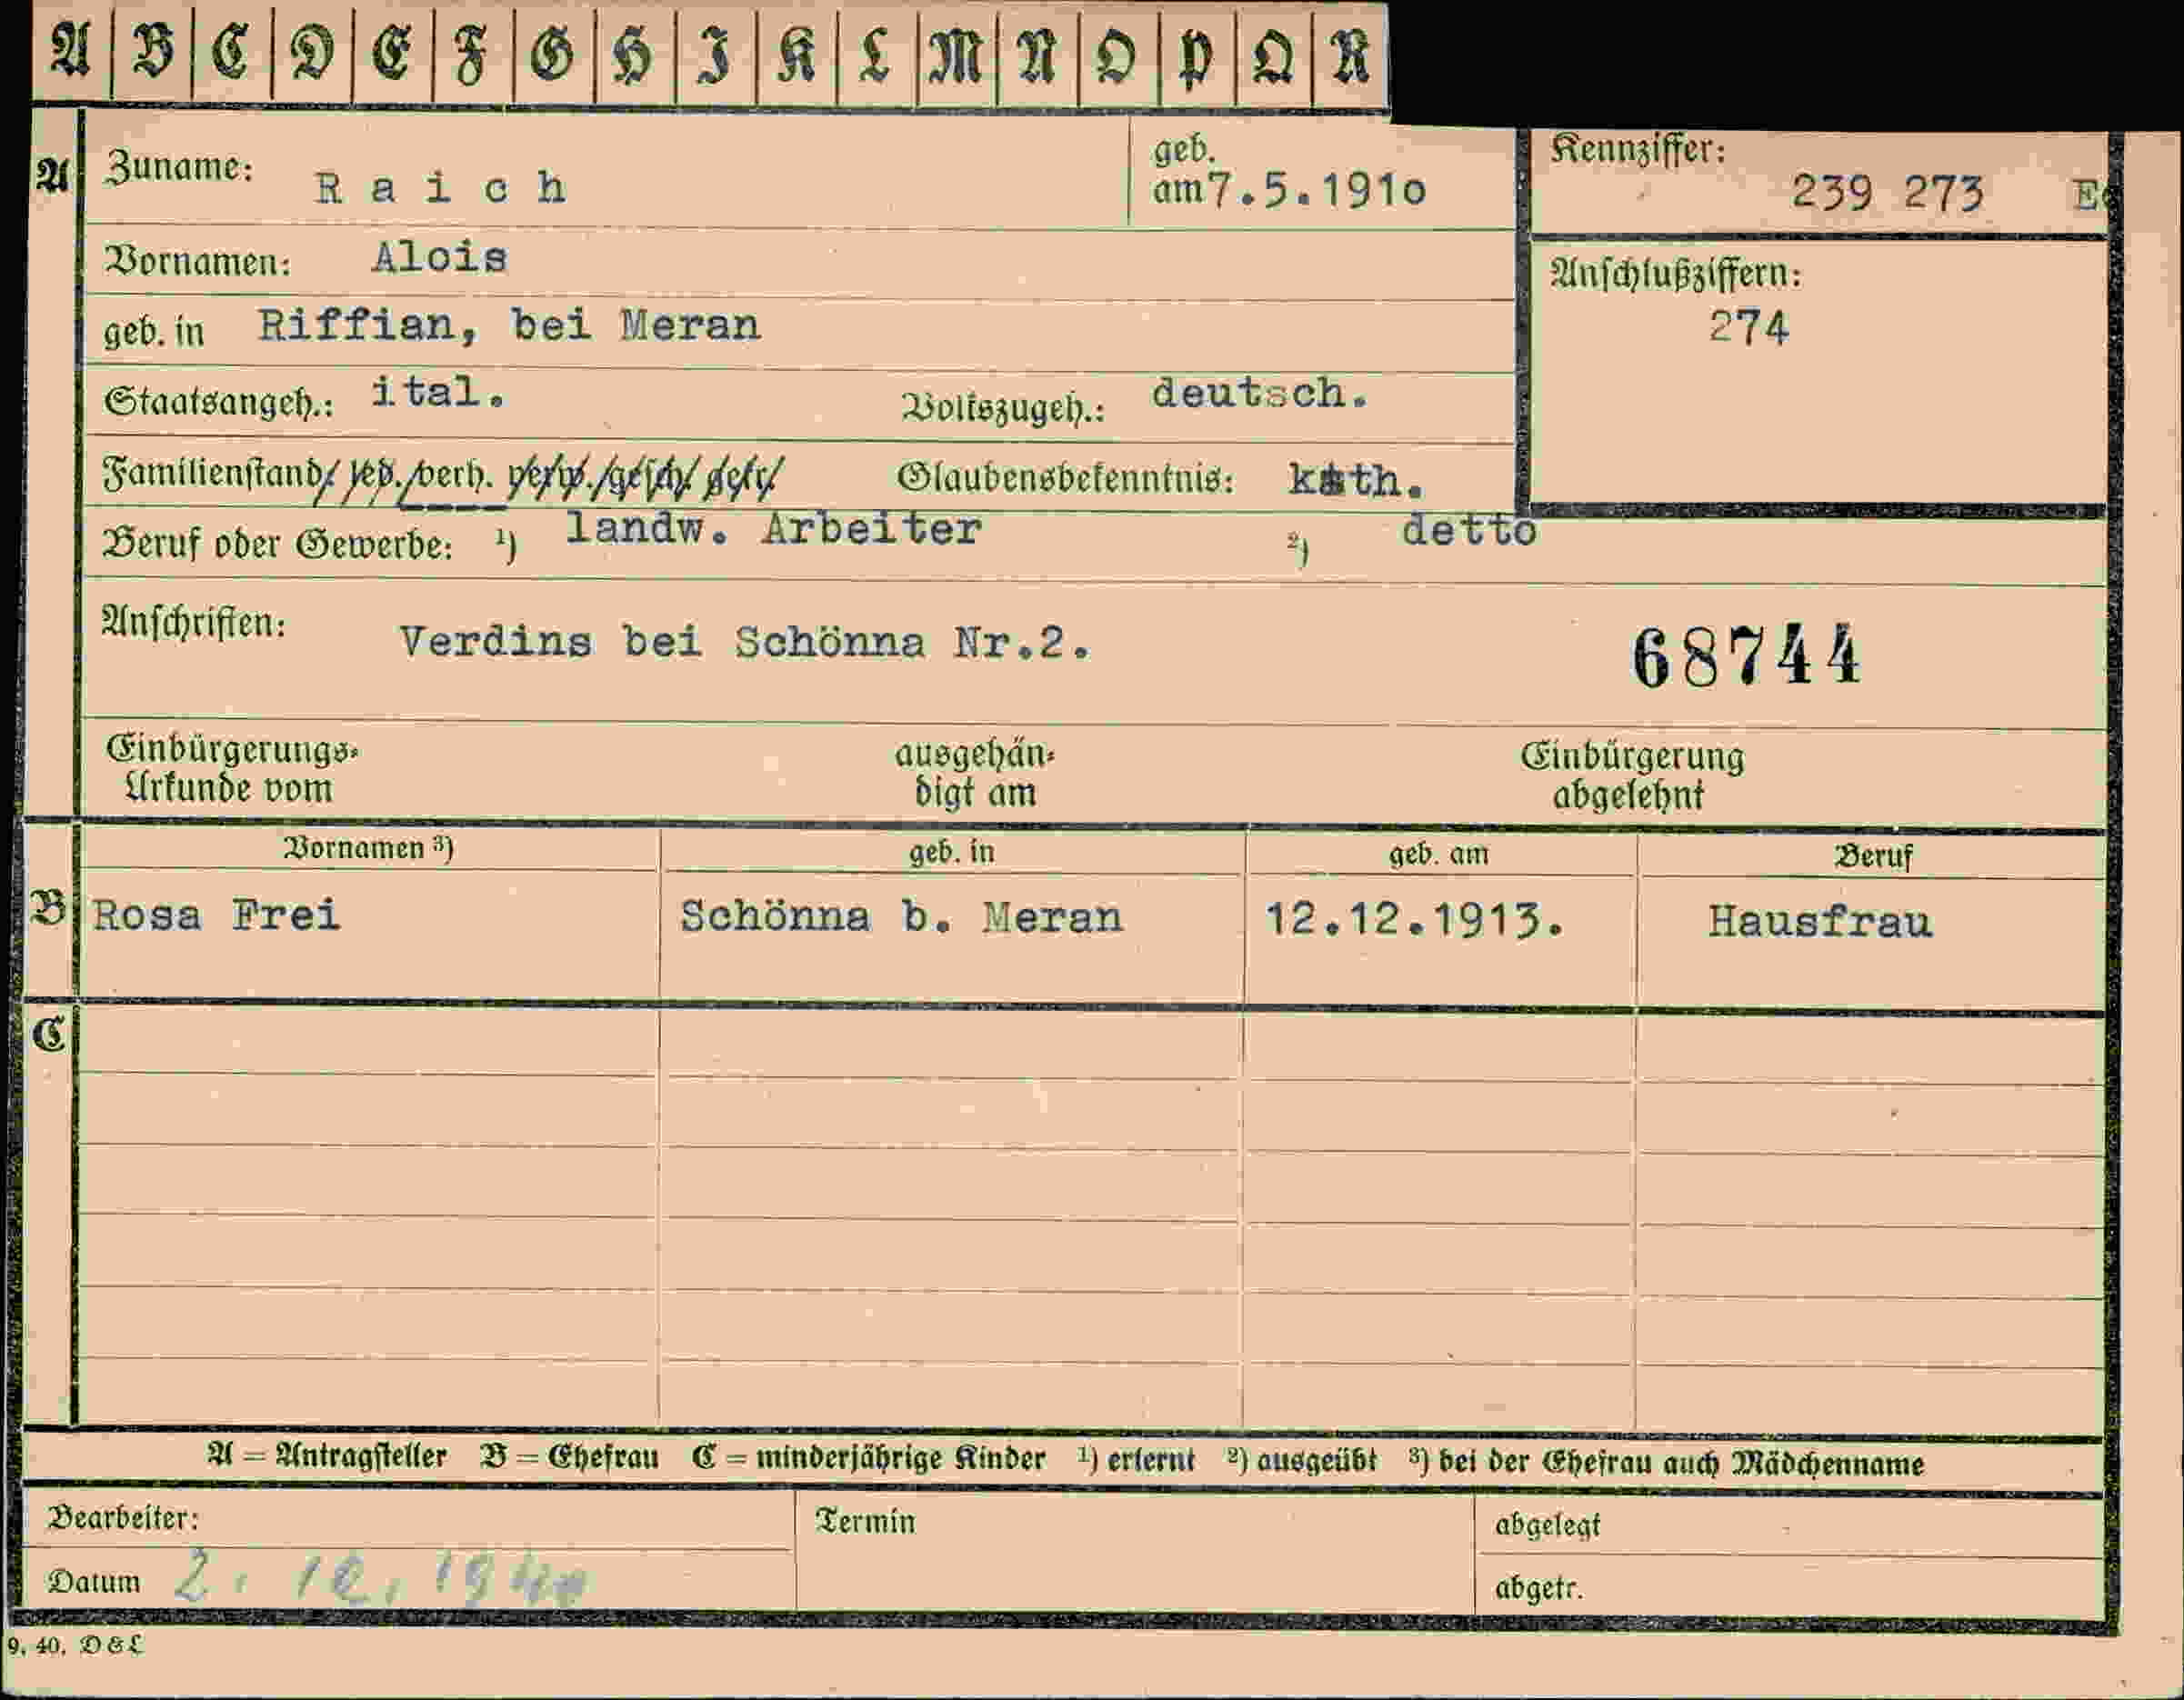 A B C D E F G H I K L M N O P Q R
A Zuname: Raich geb. am 7.5.191o Kennziffer: 239 273
Vornamen: Alois Anschlußziffern:
geb. in Riffian, bei Meran 274
Staatsangeh.: ital. Volkszugeh.: deutsch.
Familienstand/ led./verh. verw./gesch/ getr/ Glaubensbekenntnis: kath.
Beruf oder Gewerbe: 1) landw. Arbeiter 2) detto
Anschriften: Verdins bei Schönna Nr.2. 68744
Einbürgerungs- ausgehän- Einbürgerung
Urkunde vom digt am abgelehnt
Vornamen 3) geb. in geb. am Beruf
B Rosa Frei Schönna b. Meran 12.12.1913. Hausfrau
C
A = Antragsteller B = Ehefrau C = minderjährige Kinder 1) erlernt 2) ausgeübt 3) bei der Ehefrau auch Mädchenname
Bearbeiter: Termin abgelegt
Datum 2. 12. 1940 abgetr.
9. 40. D & L